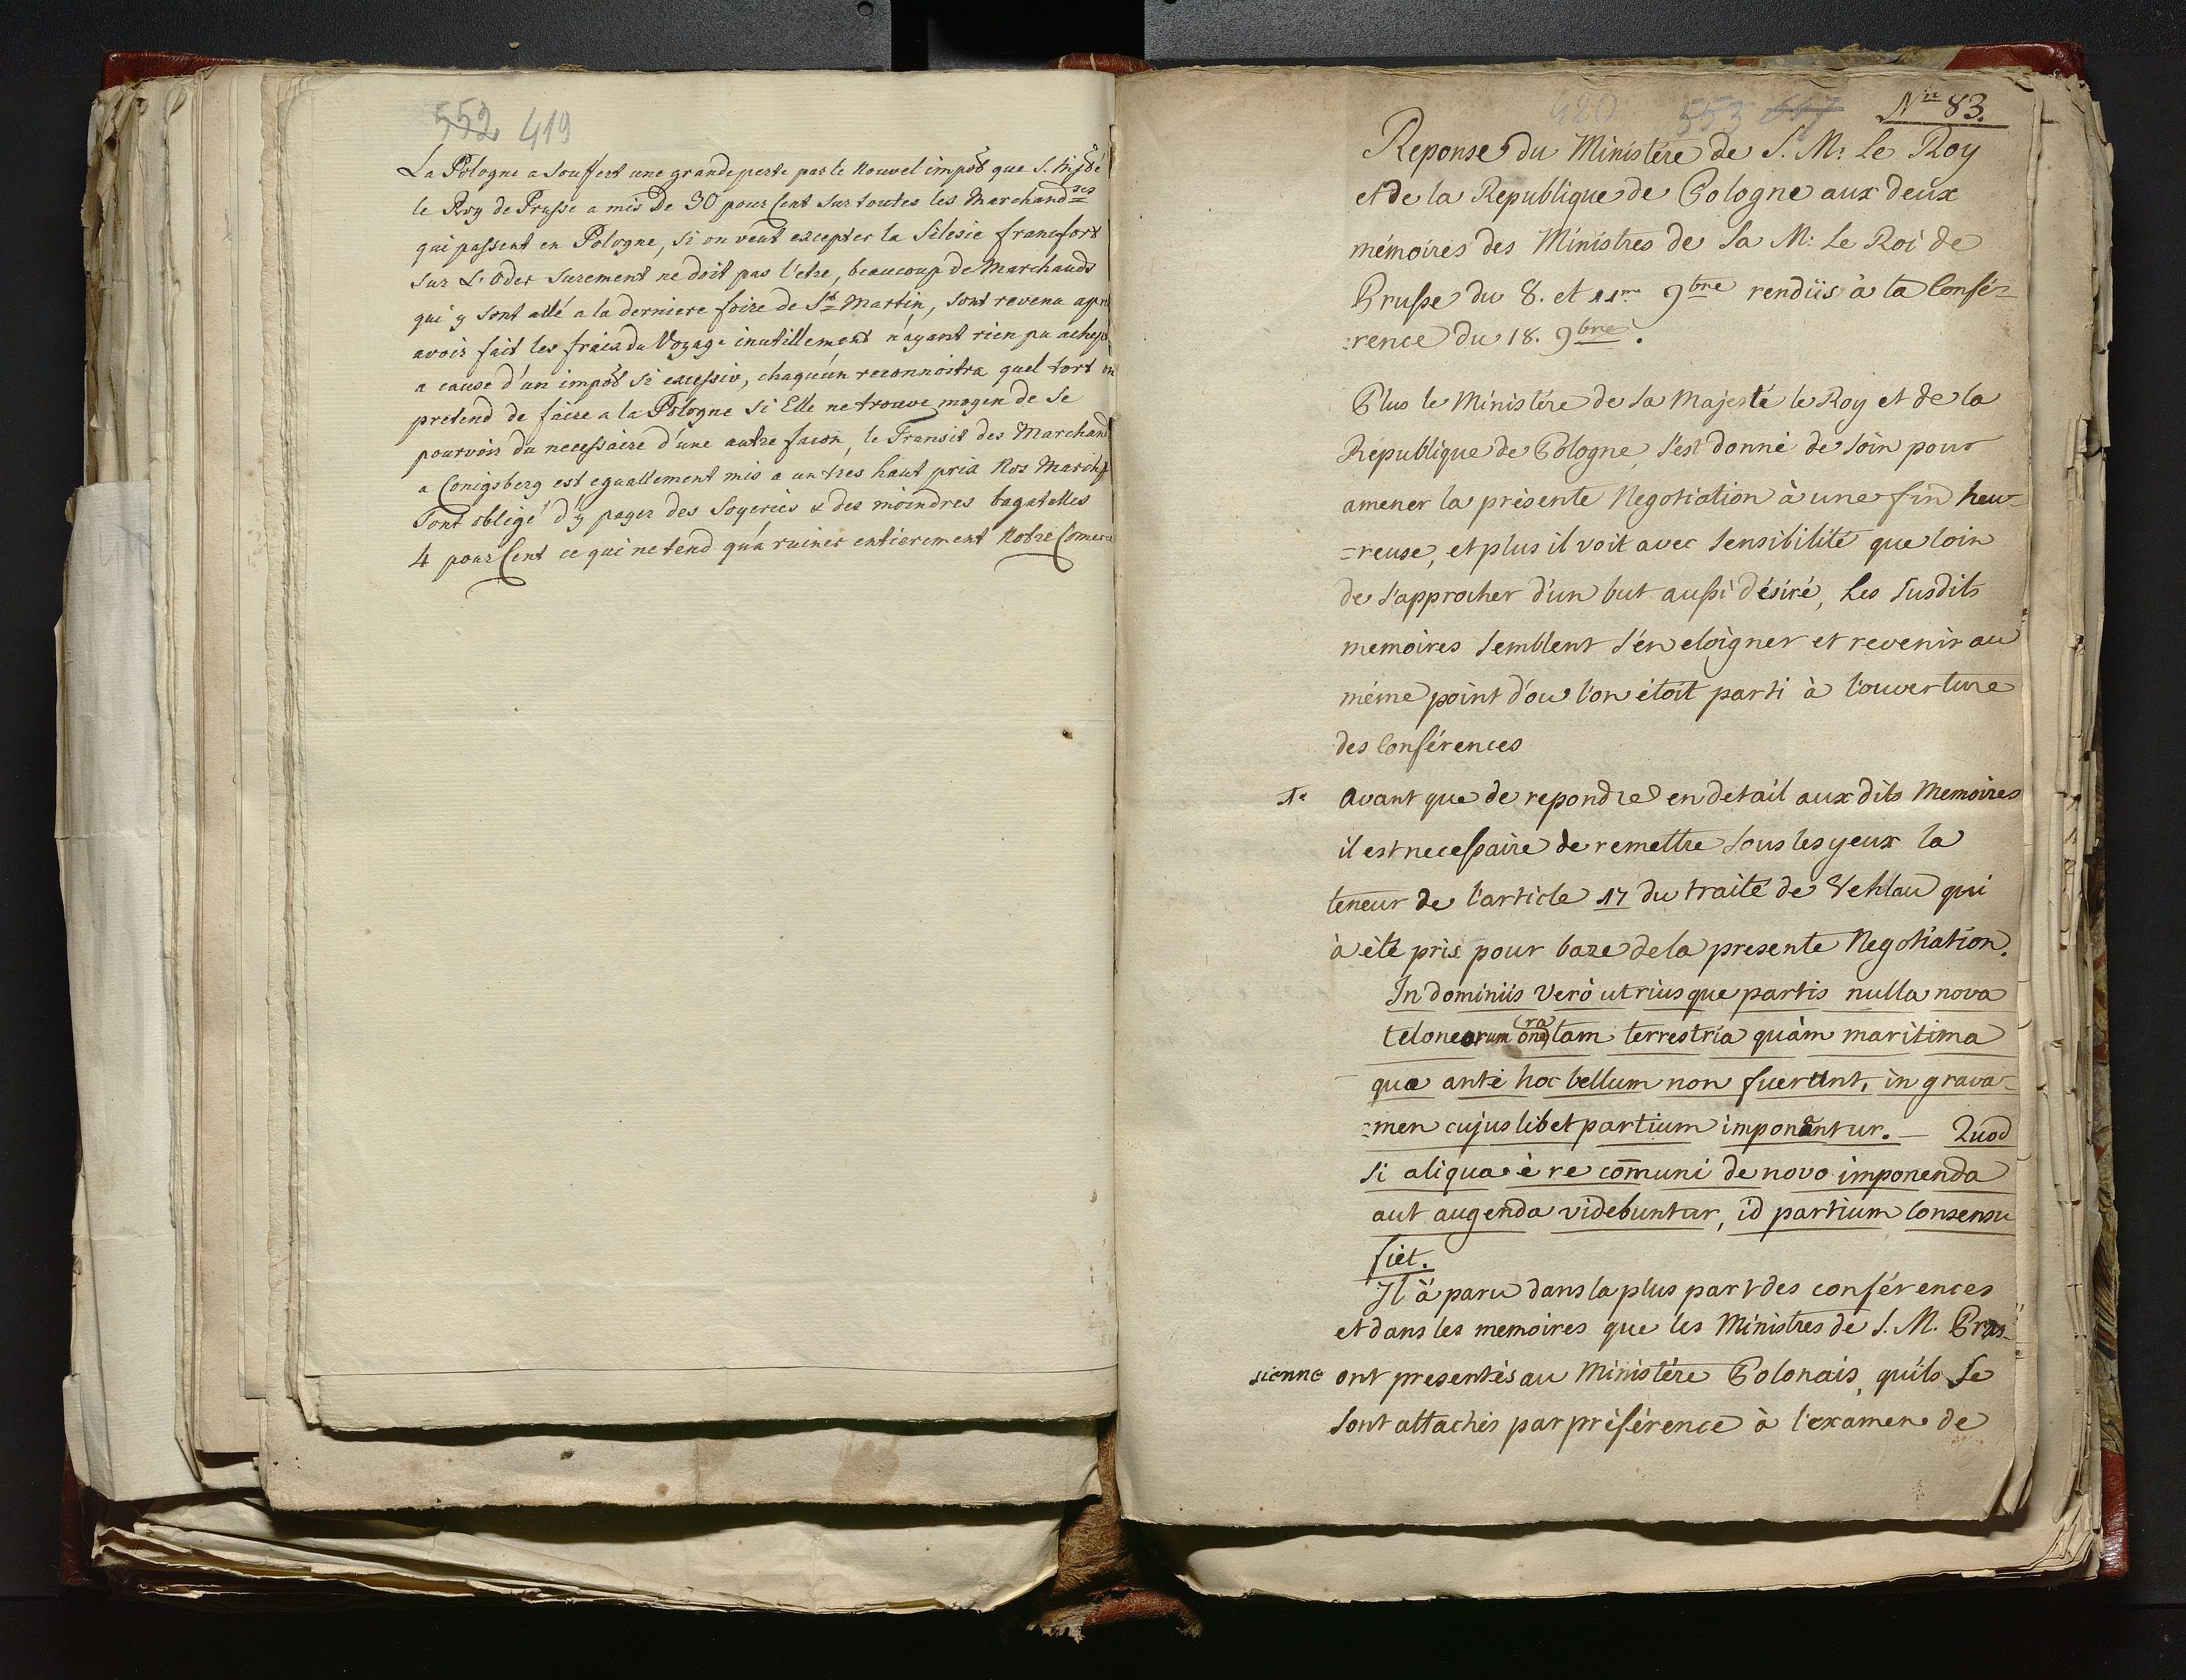 552 419
La Pologne a souffert une grande perte par le nouvel impôt que S. Mjté
le Roy de Prusse a mis de 30 pour Cent sur toutes les Marchandses
qui passent en Pologne, si on veut excepter la Silesie francfort
sur L'Oder surement ne doit pas l'etre, beaucoup de Marchands
qui y sont allé a la derniere foire de St Martin, sont revenu apr
avoir fait les frais du Voyage inutillement n'ayant rien pu achep
a cause d'un impôt si excessiv, chaqu'ún reconnoitra quel tort on
pretend de faire a la Pologne si Elle ne trouve moyen de se
pourvoir du necessaire d'une autre facon, le Transit des Marchand
a Conigsberg est eguallement mis a un tres haut prix Nos March
sont obligé d'y payer des Soyeries & des moindres bagatelles
4 pour Cent ce qui ne tend qu'a ruiner entierement Notre Comerce
420 553 Nro 83.
Reponse du Ministére de S. M. Le Roy
et de la Republique de Pologne aux deux
mémoires des Ministres de Sa M: Le Roi de
Prusse du 8. et 11me 9bre rendüs à la Confé-
:rence du 18. 9bre.
Plus le Ministére de Sa Majesté le Roy et de la
République de Pologne, s'est donné de soin pour
amener la présente Negotiation à une fin heu-
=reuse, et plus il voit avec sensibilité que loin
de s'approcher d'un but aussi désiré, Les susdits
memoires semblent s'en eloigner et revenir au
méme point d'ou l'on étoit parti à l'ouverture
des Conférences
1. Avant que de repondre en detail aux dits Memoires
il est necessaire de remettre sous les yeux la
teneur de l'article 17 du traité de Vehlau qui
à été pris pour baze de la presente Negotiation.
In dominiis verò utriusque partis nulla nova
teloneorum onera tam terrestria quàm maritima
quæ ante hoc bellum non fuerunt, in grava-
:men cujus libet partium imponantur. — Quod
si aliqua è re com̄uni de novo imponenda
aut augenda videbuntur, id partium consensu
fiet.
Il à paru dans la plus part des conférences
et dans les memoires que les Ministres de S. M. Prus-
sienne ont presentés au Ministére Polonais, qu'ils se
sont attachés par préférence à l'examen de